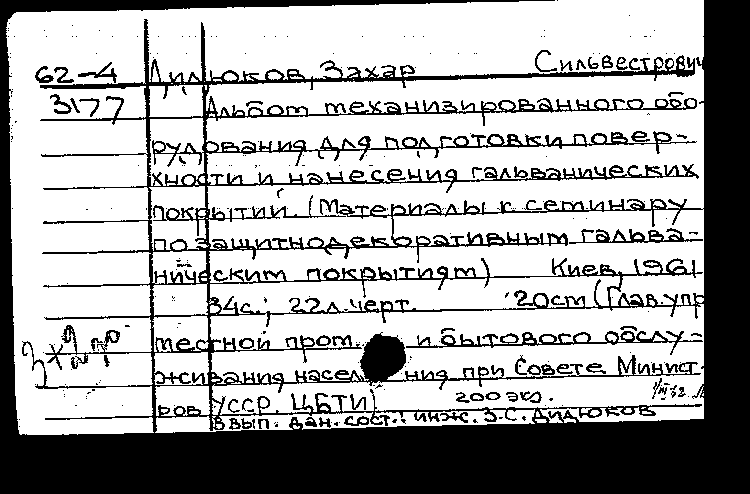 62-4 Дидюков, Захар Сильвестрович
3177 Альбом механизированного обо-
рудования для подготовки повер-
хности и нанесения гальванических
покрытий. (Материалы к семинару
по защитнодекоративным гальва-
ническим покрытиям) Киев, 1961
34с.; 22л.черт. 20см (Глав.упр
местной пром. и бытового обслу-
живания насел ния при Совете Минист-
ров УССР. ЦБТИ) 200 экз.
В вып. дан. сост.: инж. З.С. Дидюков